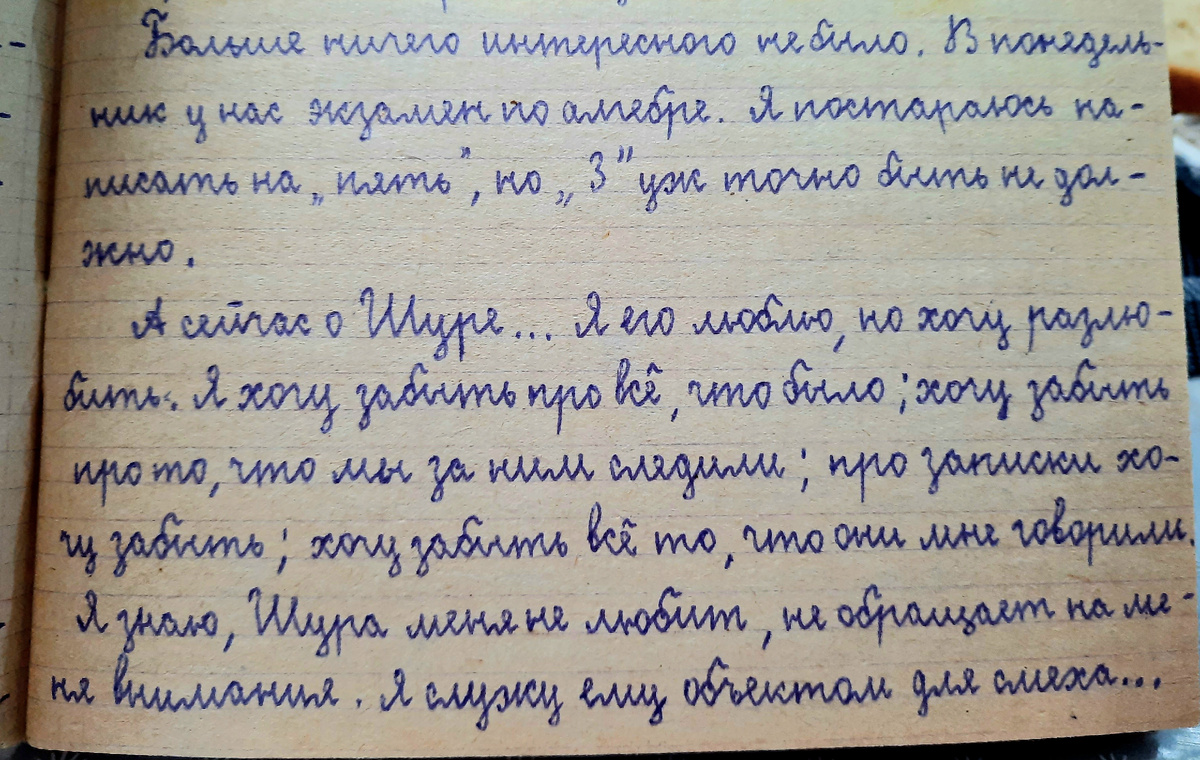 Больше ничего интересного не было. В понедель-
ник у нас экзамен по алгебре. Я постараюсь на-
писать на „пять", но „3" уж точно быть не дол-
жно.
А сейчас о Шуре... Я его люблю, но хочу разлю-
бить. Я хочу забыть про всё, что было; хочу забыть
про то, что мы за ним следили; про записки хо-
чу забыть; хочу забыть всё то, что они мне говорили.
Я знаю, Шура меня не любит, не обращает на ме-
ня внимания. Я служу ему объектом для смеха...